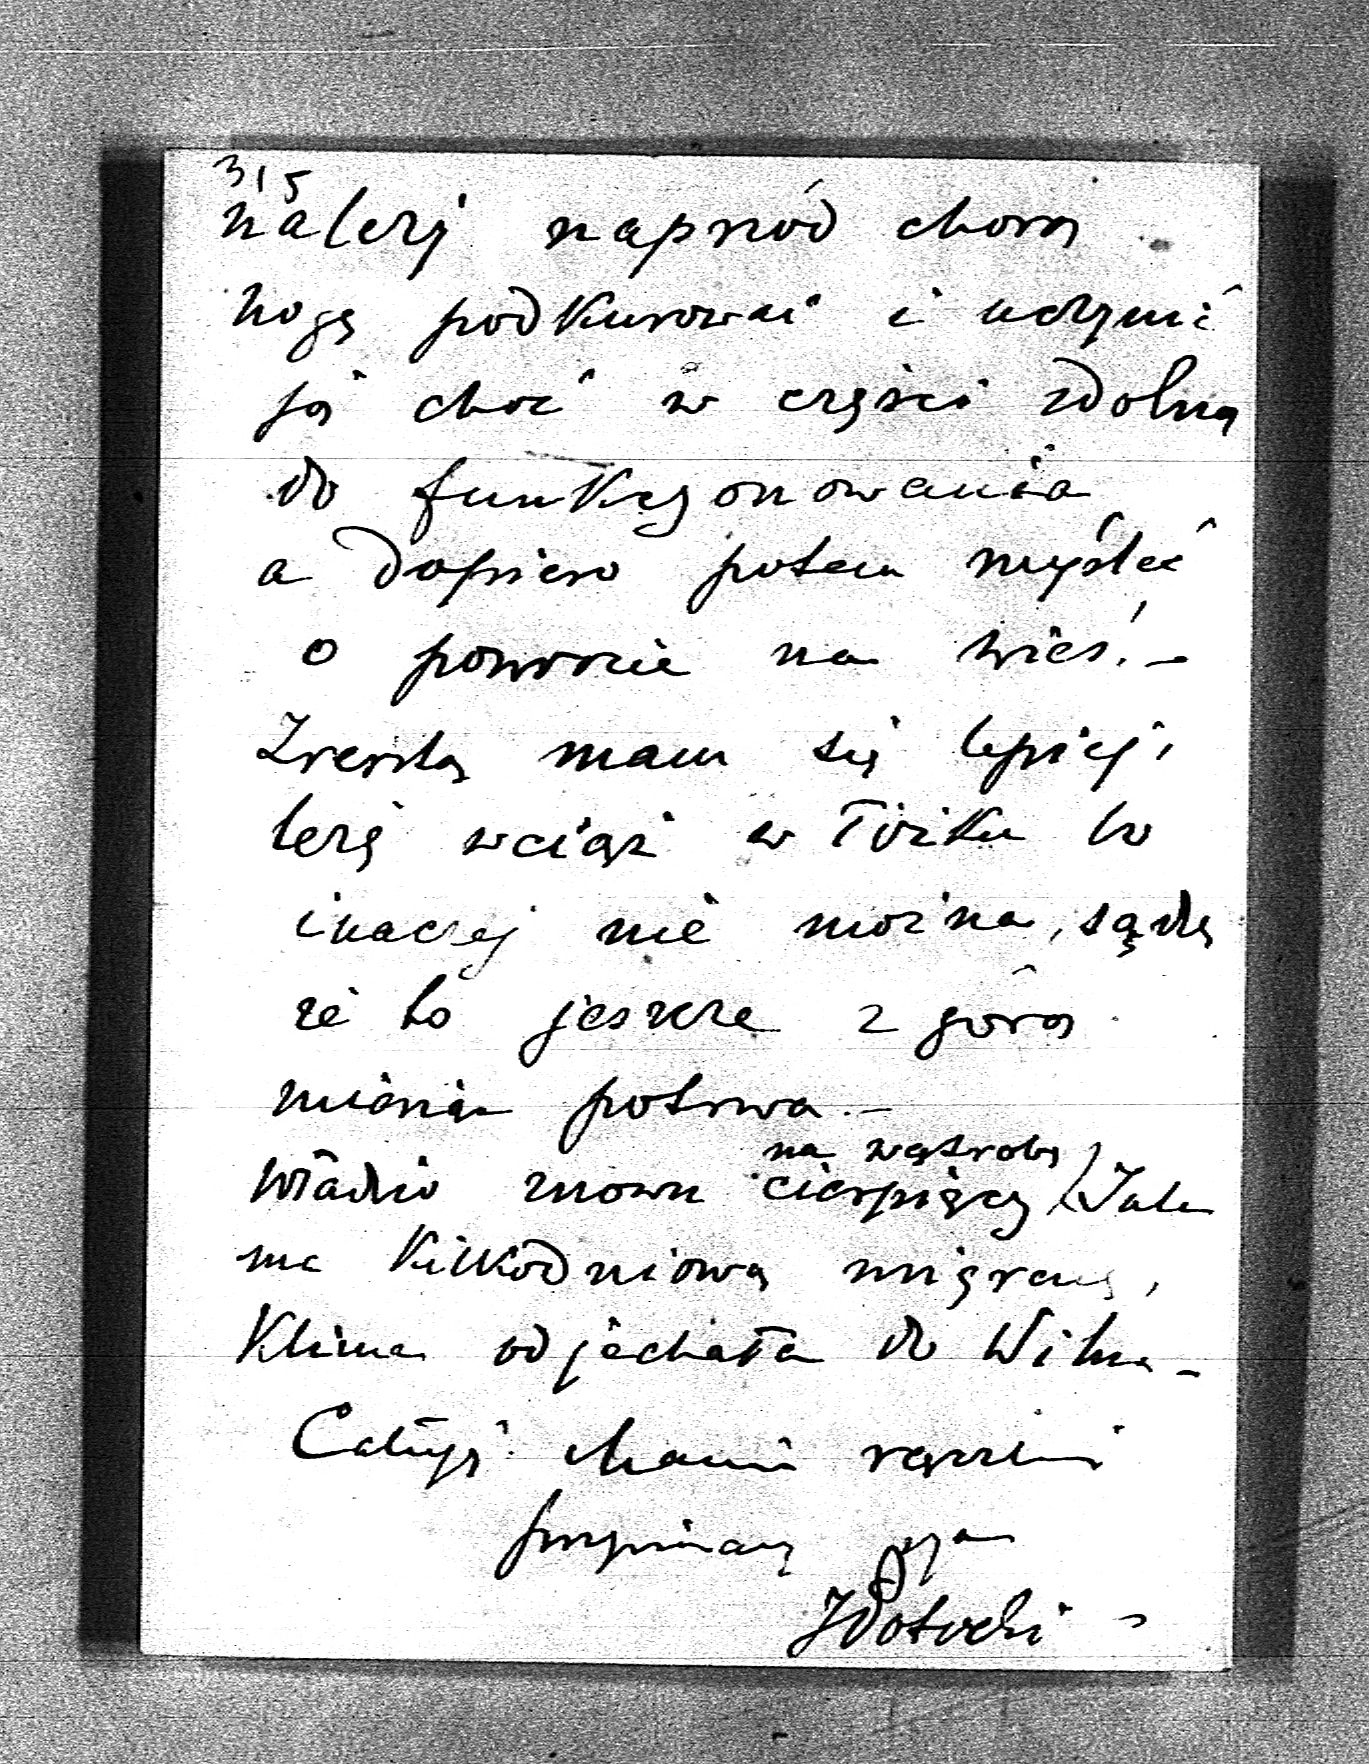 315
należy naprzód chorą
nogę podkurować i uczynić
ją choć w części zdolną
do funkcyonowania
a dopiero potem myśleć
o powrocie na wieś. –
Zresztą mam się lepiej,
leżę wciąż w łóżku bo
inaczej nie można, sądzę
że to jeszcze z górą
miesiąc potrwa. –
na wątrobę
Władzio znowu cierpiący / Jula
ma kilkodniową migrenę,
Klima odjechała do Wilna –
Całuję chame rączki
przywiązany
JPotocki